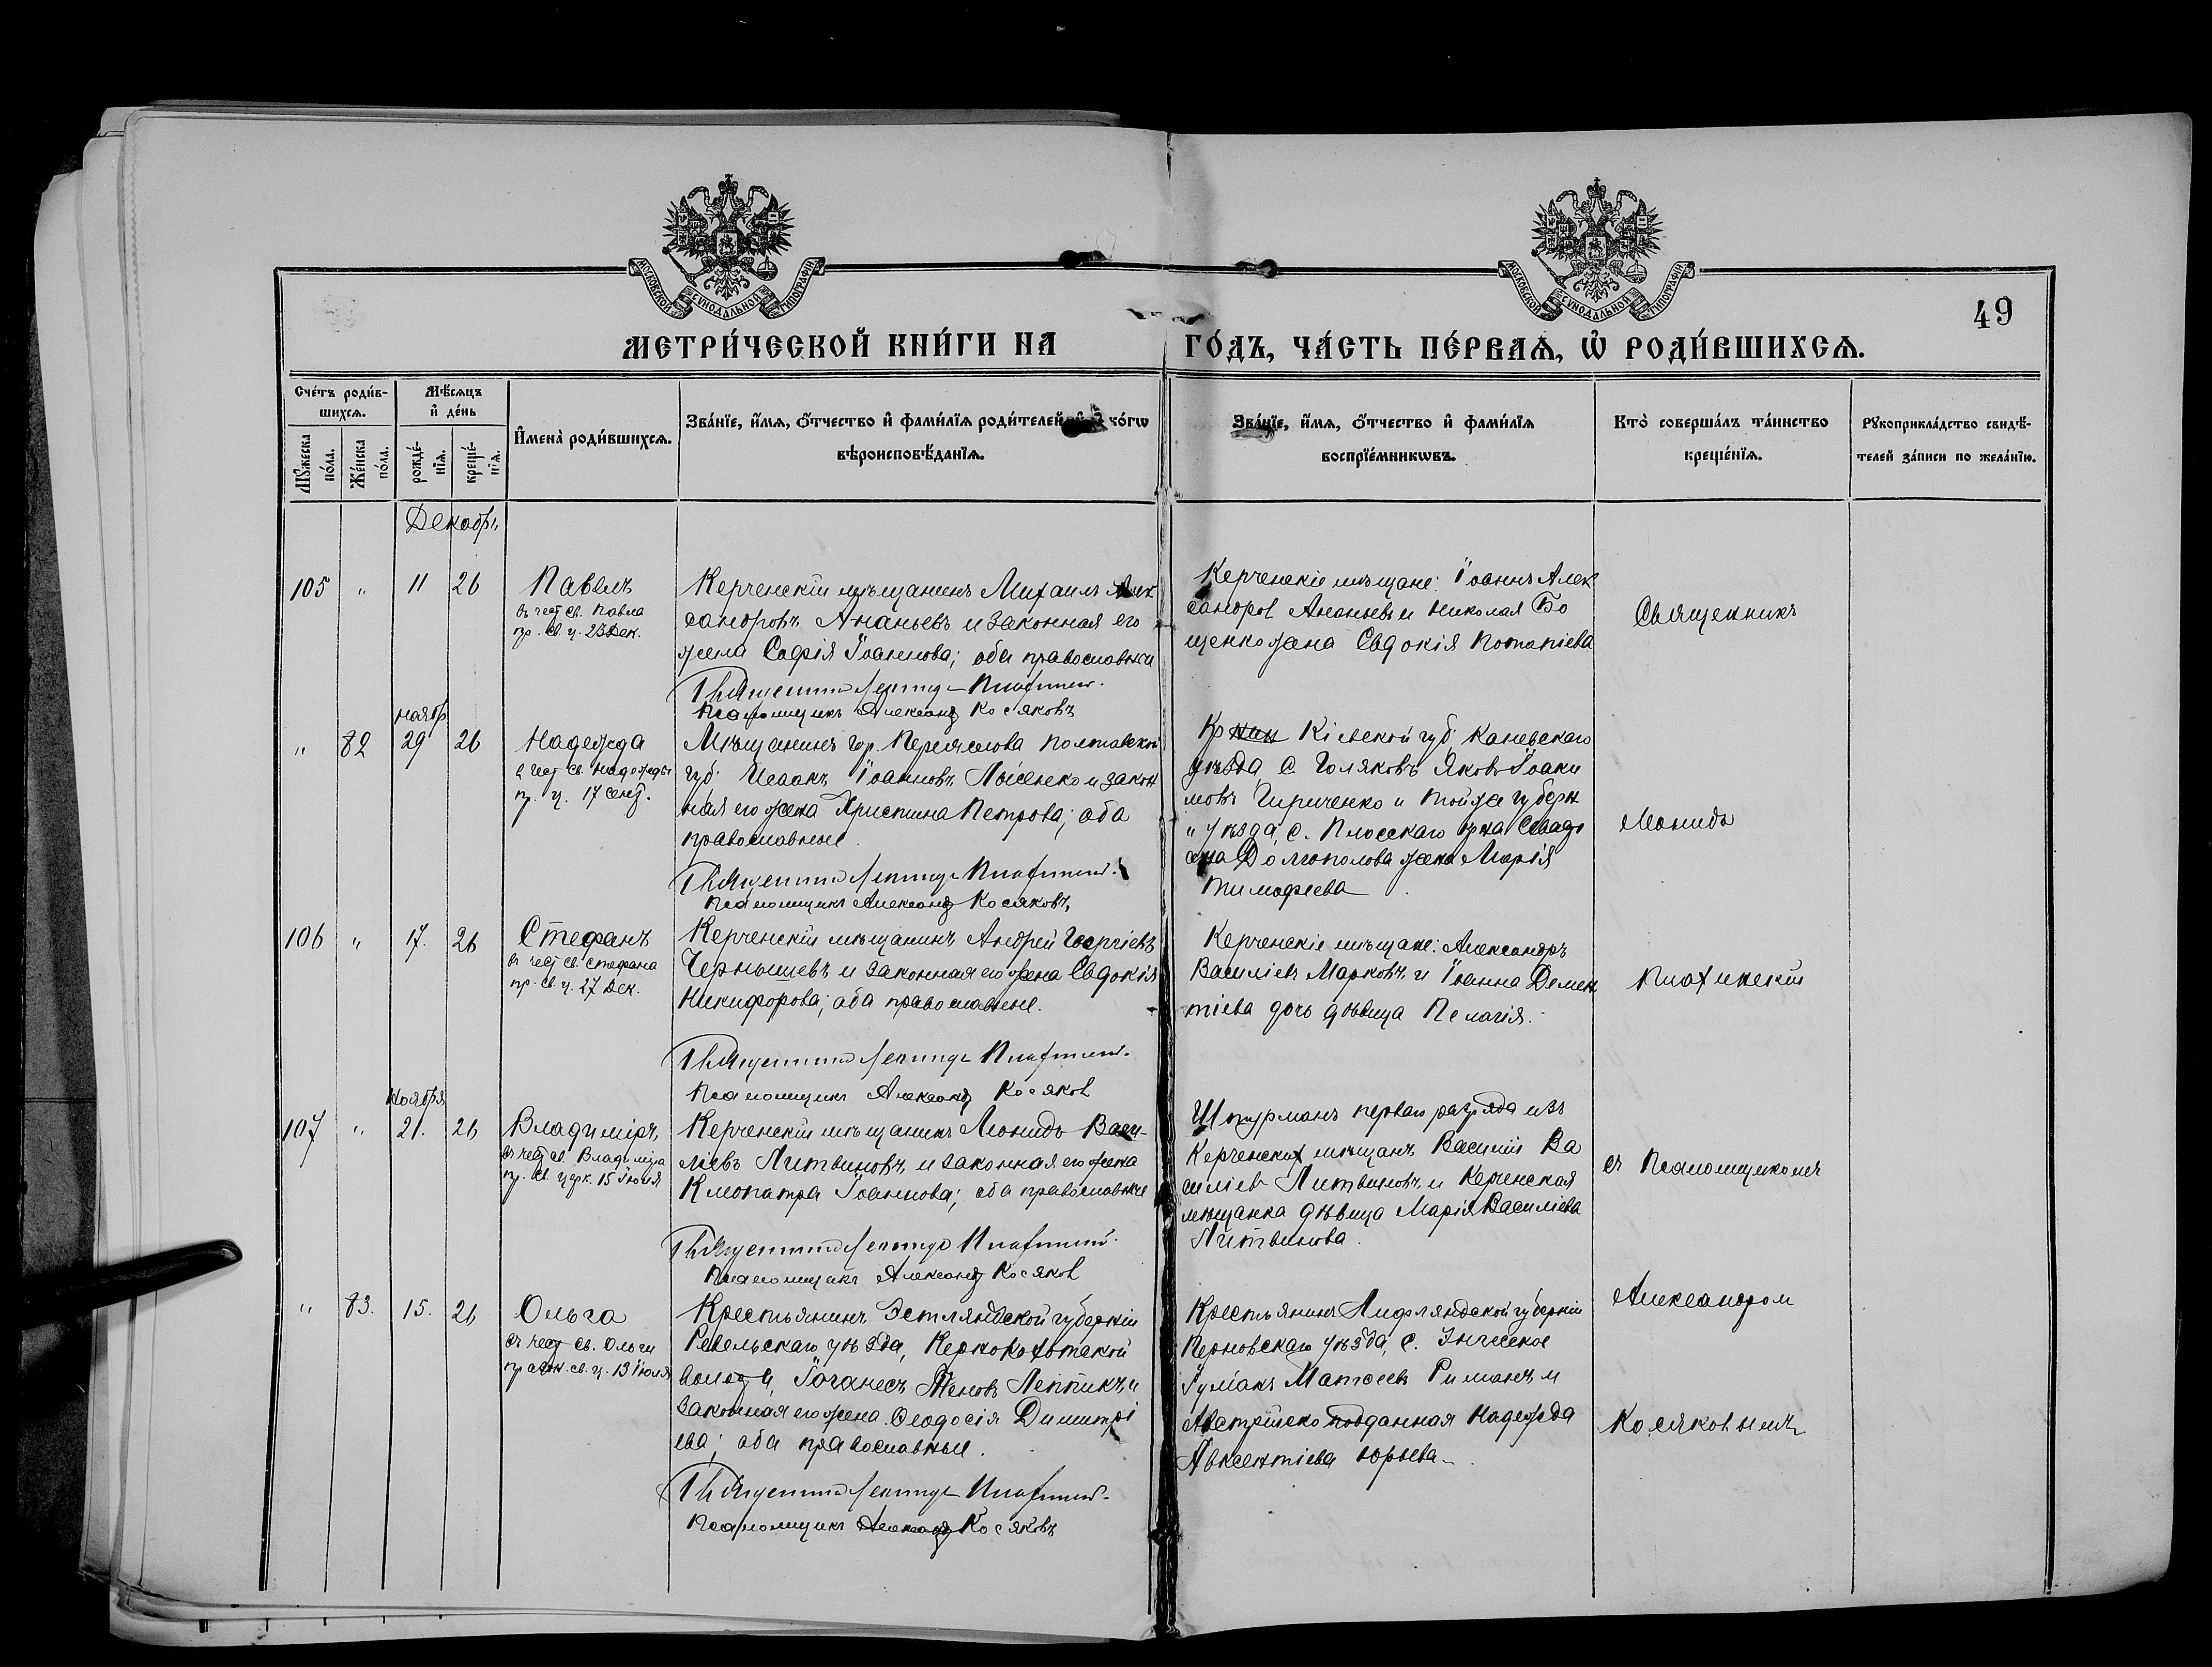 МОСКОВСКОЙ СУНОДАЛЬНОЙ ТИПОГРАФІИ
МОСКОВСКОЙ СУНОДАЛЬНОЙ ТИПОГРАФІИ
49
МЕТРИ́ЧЕСКОЙ КНИ́ГИ НА ГО́ДЪ, ЧА́СТЬ ПЕ́РВАѦ, Ѡ҆ РОДИ́ВШИХСѦ.
Сче́тъ роди́в-
шихсѧ.
Мꙋ́жеска по́ла.
Же́нска по́ла.
Мѣ́сѧцъ
и҆ де́нь
рожде́-
нїѧ.
креще́-
нїѧ.
И҆мена̀ роди́вшихсѧ.
Зва́нїе, и҆́мѧ, ѻ҆́тчество и҆ фами́лїѧ роди́телей и҆ ко́гѡ
вѣроисповѣ́данїѧ.
Зва́нїе, и҆́мѧ, ѻ҆́тчество и҆ фами́лїѧ
воспрїе́мникѡвъ.
Кто̀ соверша́лъ та́инство
креще́нїѧ.
Рꙋкоприкла́дство свидѣ́-
телей за́писи по жела́нїю.
Декабрь
105 " 11 26
Павелъ
въ чест св. Павла
пр. св. ц. 23 Дек.
Керченскій мѣщанинъ Михаилъ Алек
сандровъ Ананьевъ и законная его
жена Софія Іоаннова; оба православны
Псаломщикъ Александ Косяковъ
Керченскіе мѣщане: Іоаннъ Алек
сандров Ананьевъ и Николая Бо
щенко жена Евдокія Потапіева
Священникъ
Ноябр
" 82 29 26
Надежда
в чест св. Надежды
пр. ц. 17 сент.
Мѣщанинъ гор. Переяслова Полтавской
губ. Исаакъ Іоанновъ Лысенко и закон
ная его жена Христина Петрова; оба
православные.
Псаломщикъ Александ Косяковъ,
Кр Кіевской губ. Каневскаго
уѣзда, с. Голяковъ Яковъ Іоаки
мовъ Гириченко и той же губерн
и уѣзда, с. Плосскаго
Долгополова жена Марія
Тимофеева
Леонидъ
106 " 17. 26
Стефанъ
въ чест св. Стефана
пр. св. ц. 27 Дек.
Керченскій мѣщанинъ Андрей Георгіевъ
Чернышевъ и законная его жена Евдокія
Никифорова; оба православные.
Псаломщикъ Александ Косяков
Керченскіе мѣщане: Александръ
Василіевъ Марковъ и Іоанна Демен
тіева дочь дѣвица Пелагія.
Ноября
107 " 21. 26
Владиміръ,
въ чест св. Владиміра
пр. св. церк. 15 Іюля
Керченскій мѣщанинъ Леонидъ Васи-
ліевъ Литвиновъ и законная его жена
Клеопатра Іоаннова; оба православные
Псаломщикъ Александ Косяков
Штурманъ перваго разряда изъ
Керченских мѣщанъ Василій Ва
силіев Литвиновъ и Керченская
мѣщанка дѣвица Марія Василіева
Литвинова.
съ Псаломщикомъ
" 83. 15. 26
Ольга
въ чест св. Ольги
праздн. св. ц. 13 Іюля
Крестьянинъ Эстляндской губерніи
Ревельскаго уѣзда,
волости, Іоганесъ Леппикъ и
законная его жена Ѳеодосія Димитрі
ева; оба православные.
Псаломщикъ Александ Косяковъ
Крестьянинъ Лифляндской губерніи
Перновскаго уѣзда, с.
Матвеевъ Риманъ и
Австрійско подданная Надежда
Авксентіева Юрьева.
Александром
Косяковымъ